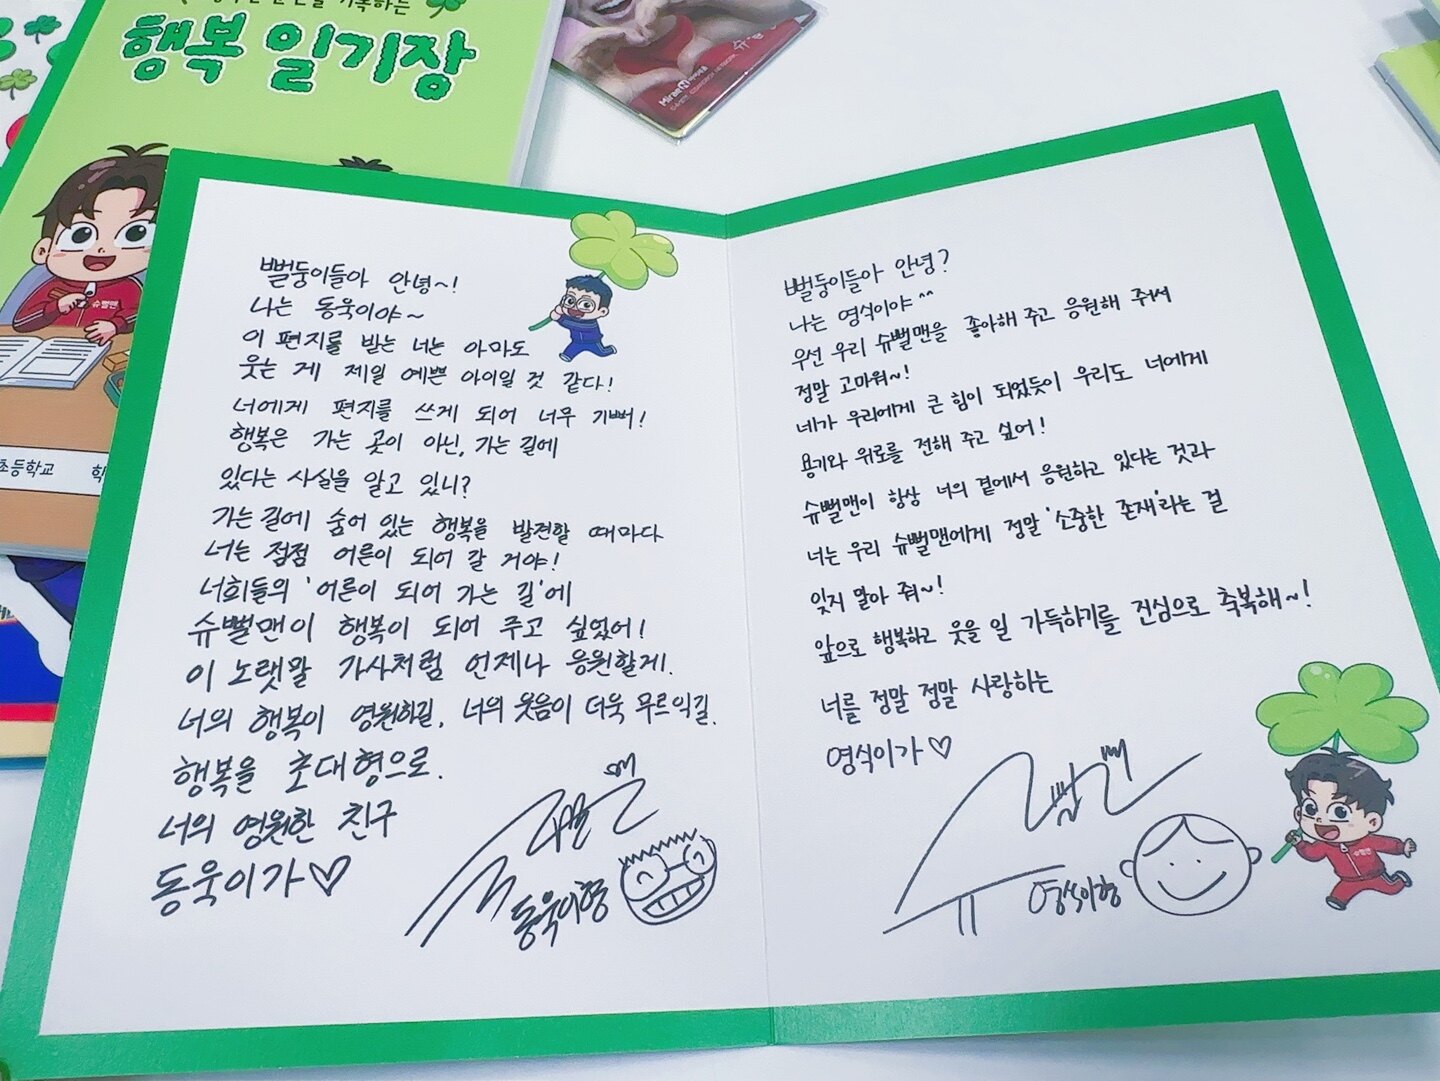 행복 일기장
슈뻘맨
초등학교
Mirae 미래엔
뻘둥이들아 안녕~!
나는 동욱이야~
이 편지를 받는 너는 아마도
웃는 게 제일 예쁜 아이일 것 같다!
너에게 편지를 쓰게 되어 너무 기뻐!
행복은 가는 곳이 아닌, 가는 길에
있다는 사실을 알고 있니?
가는 길에 숨어 있는 행복을 발견할 때마다
너는 점점 어른이 되어 갈 거야!
너희들의 '어른이 되어 가는 길'에
슈뻘맨이 행복이 되어 주고 싶었어!
이 노랫말 가사처럼 언제나 응원할게!
너의 행복이 영원하길, 너의 웃음이 더욱 무르익길.
행복을 초대형으로.
너의 영원한 친구
동욱이가♡
슈뻘맨
동욱이형
뻘둥이들아 안녕?
나는 영식이야^^
우선 우리 슈뻘맨을 좋아해 주고 응원해 줘서
정말 고마워~!
네가 우리에게 큰 힘이 되었듯이 우리도 너에게
용기와 위로를 전해 주고 싶어!
슈뻘맨이 항상 너의 곁에서 응원하고 있다는 것과
너는 우리 슈뻘맨에게 정말 '소중한 존재'라는 걸
잊지 말아 줘~!
앞으로 행복하고 웃을 일 가득하기를 진심으로 축복해~!
너를 정말 정말 사랑하는
영식이가♡
슈뻘맨
영식이형
슈뻘맨